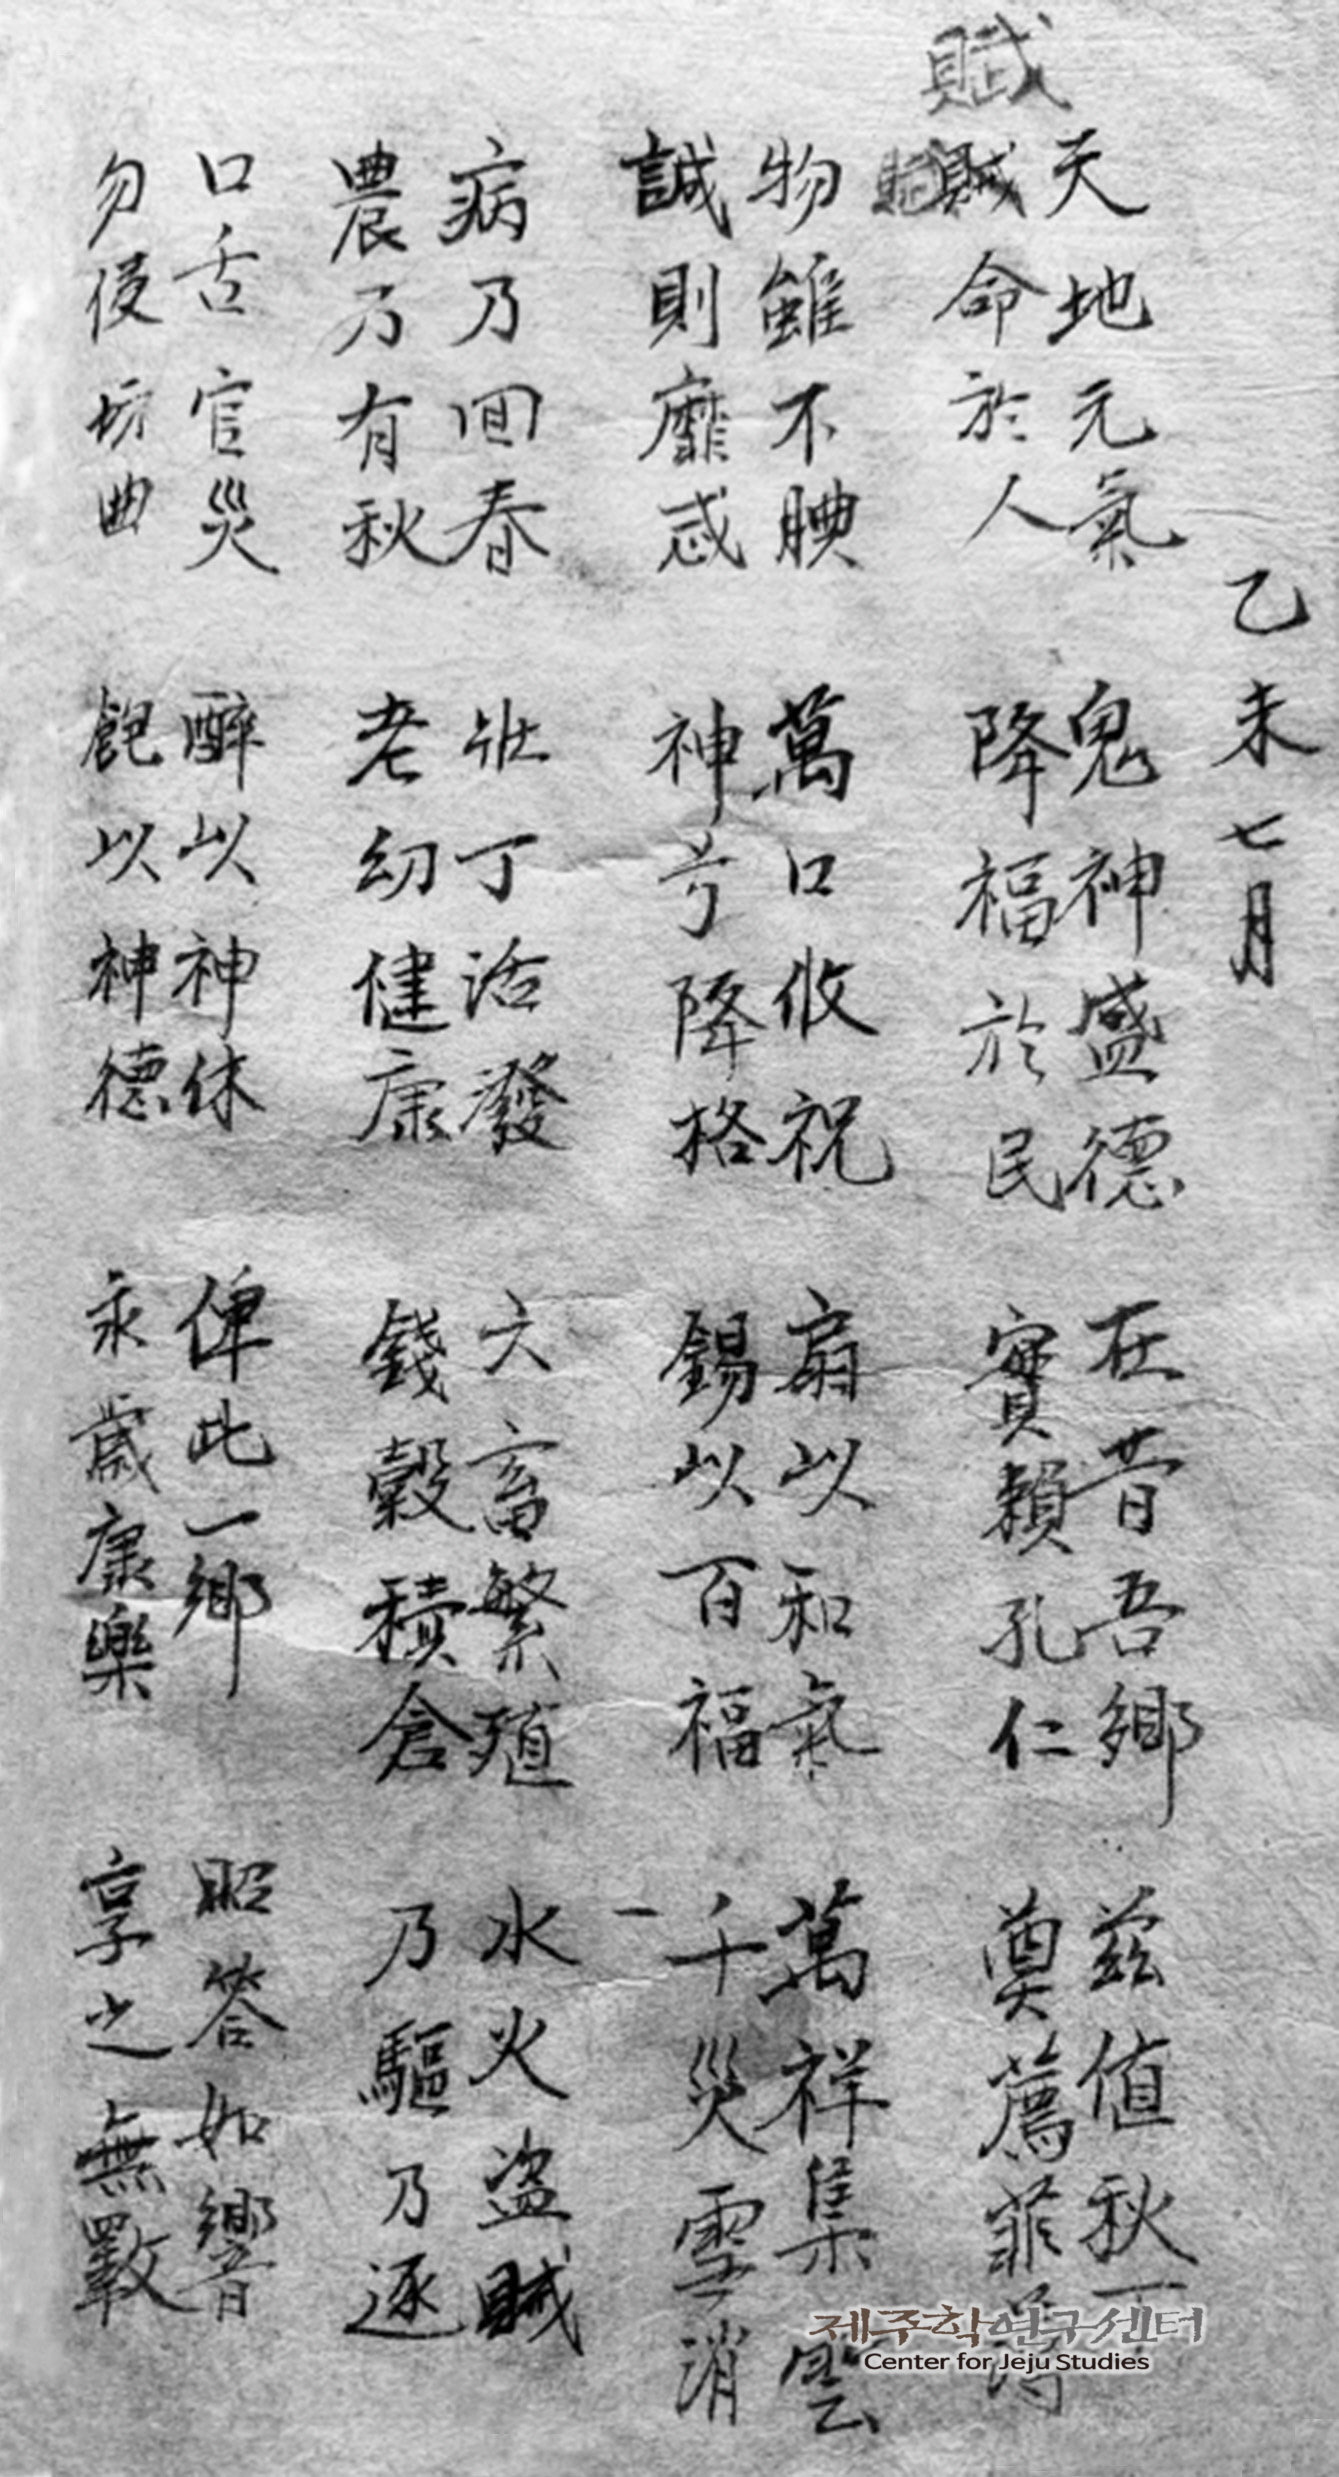 乙未七月
賦
天地元氣
賦命於人
鬼神盛德
降福於民
在昔吾鄉
實賴孔仁
茲值秋
奠薦菲
物雖不腆
誠則靡忒
萬口攸祝
神兮降格
扇以和氣
錫以百福
萬祥集雲
千災雪消
病乃回春
農乃有秋
壯丁活潑
老幼健康
六畜繁殖
錢穀積倉
水火盜賊
乃驅乃逐
口舌官災
勿侵坊曲
醉以神休
飽以神德
俾此一鄉
永歲康樂
昭答如響
享之無斁
제주학연구센터
Center for Jeju Studies